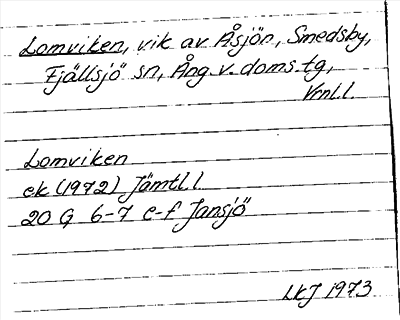 Lomviken, vik av Åsjön, Smedsby,
Fjällsjö sn, Ång. v. doms. tg,
Vnl.l.
Lomviken
ek (1972) Jämtl.l
20 G 6-7 e-f Jansjö
LKJ 1973